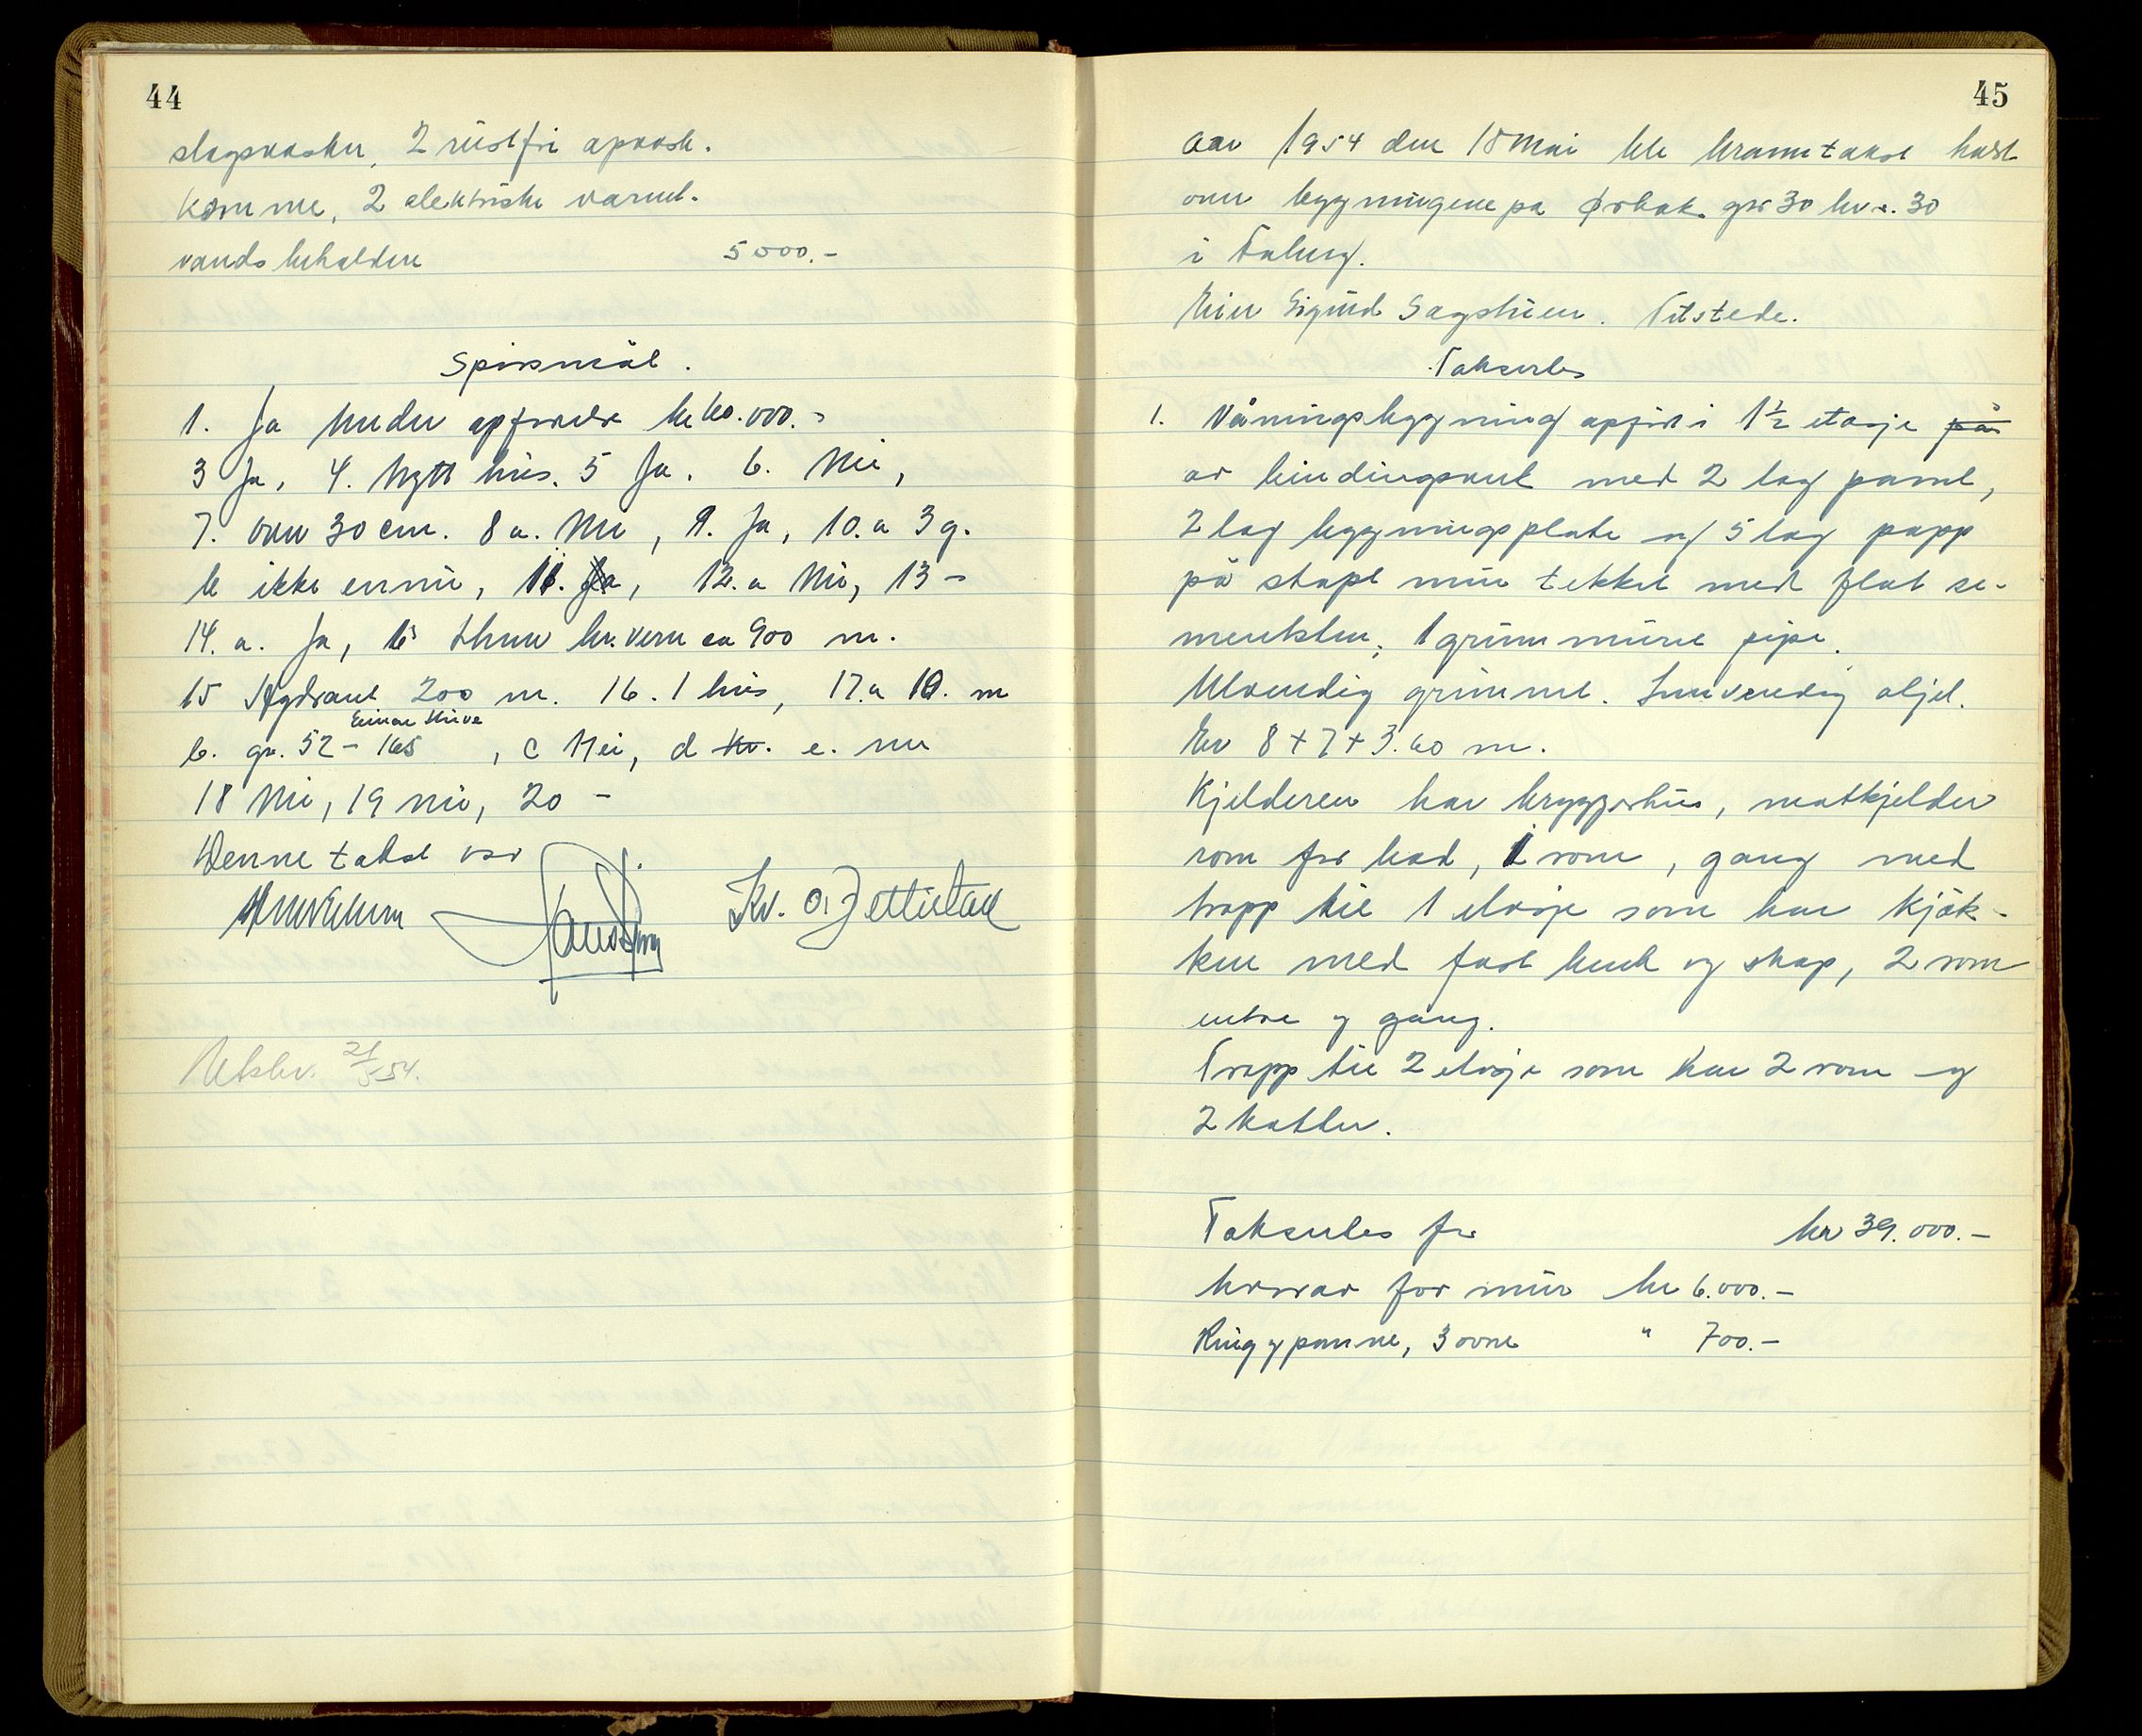 44
slagvasker, 2 rustfri opvask.
komme, 2 elektriske varmt.
vands beholdere 5000.-
Spørsmål.
1. Ja huder opfører kr 60.000.-
3 Ja, 4. Nytt hus. 5 Ja. 6. Nei,
7. over 30 cm. 8 a. Nei, 9. Ja, 10. a 3 g.
b ikke ennu, 11. Ja, 12. a Nei, 13 -
14. a. Ja, b br.vern ca 900 m.
15 Hydrant 200 m. 16. 1 hus, 17. a 10. m
Einar
b. gr. 52 - 165, c Nei, d e. nei
18 Nei, 19 nei, 20 -
Denne takst var
Kv. O. Jettestad
Utskr. 21/5 54.
45
Aar 1954 den 18 Mai ble branntakst holdt
over bygningene på Ørbak gr 30 br. 30
i Faaberg.
Eier Sigurd Sagstuen. Tilstede.
Taksertes
1. Våningsbygning opført i 1½ etasje på
av bindingsverk med 2 lag panel,
2 lag bygningsplate og 5 lag papp
på støpt mur tekket med flat se-
mentsten, 1 grunnmuret pipe.
Utvendig grunnet. Innvendig oljet.
Er 8 + 7 + 3.60 m.
Kjelderen har bryggerhus, matkjelder
rom for bad, 1 rom, gang med
trapp til 1 etasje som har kjøk-
ken med fast benk og skap, 2 rom
entre og gang.
Trapp til 2 etasje som har 2 rom og
2 kotter.
Takseres for kr 39.000.-
hvorav for mur kr 6.000.-
Ring og panne, 3 ovne " 700.-